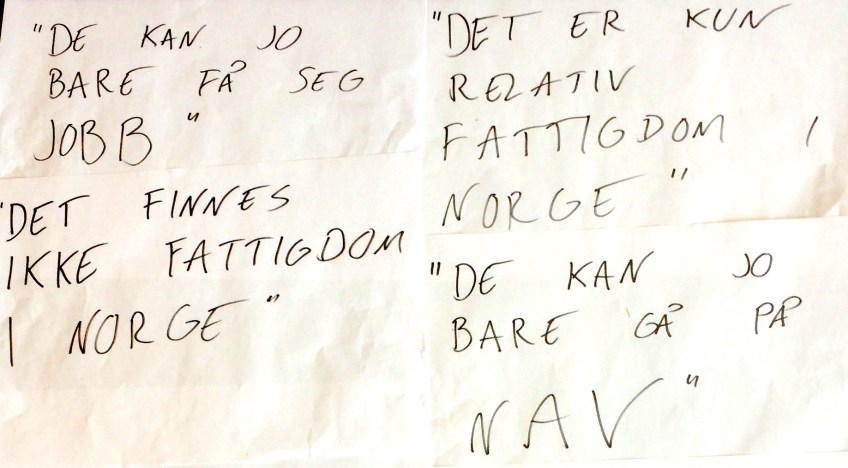 "DE KAN JO
BARE FÅ SEG
JOBB"
"DET FINNES
IKKE FATTIGDOM
I NORGE"
"DET ER KUN
RELATIV
FATTIGDOM I
NORGE"
"DE KAN JO
BARE GÅ PÅ
NAV"